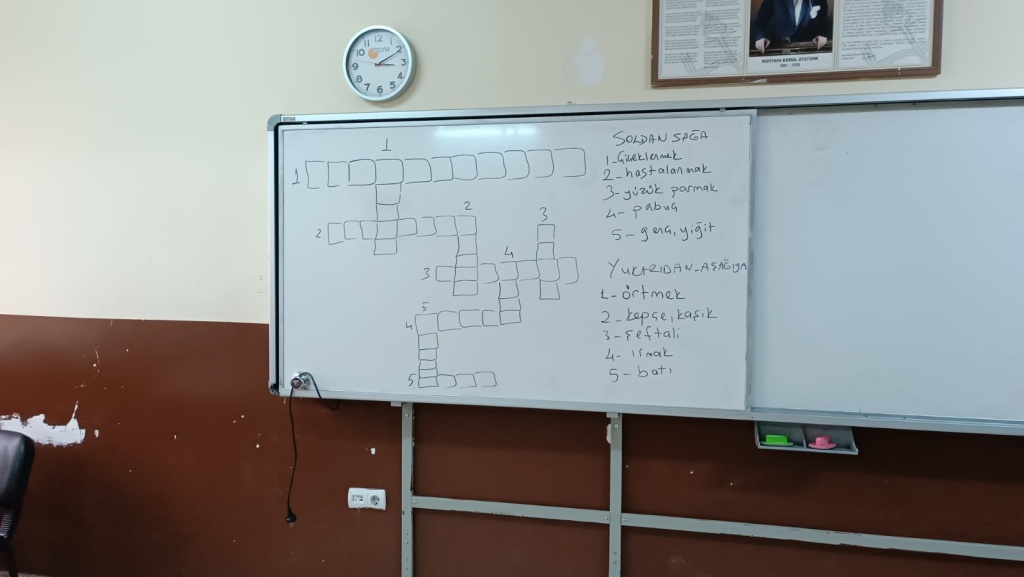 MUSTAFA KEMAL ATATÜRK
1881 - 1938
12
11 1
10 2
9 3
8 4
7 6 5
1
1
2
2
3
4
3
5
4
5
SOLDAN SAĞA
1-Çiçeklenmek
2-hastalanmak
3-yüzük parmak
4-pabuç
5-genç, yiğit
YUKARIDAN-AŞAĞIYA
1-örtmek
2-kepçe, kaşık
3-şeftali
4-ırmak
5-batı